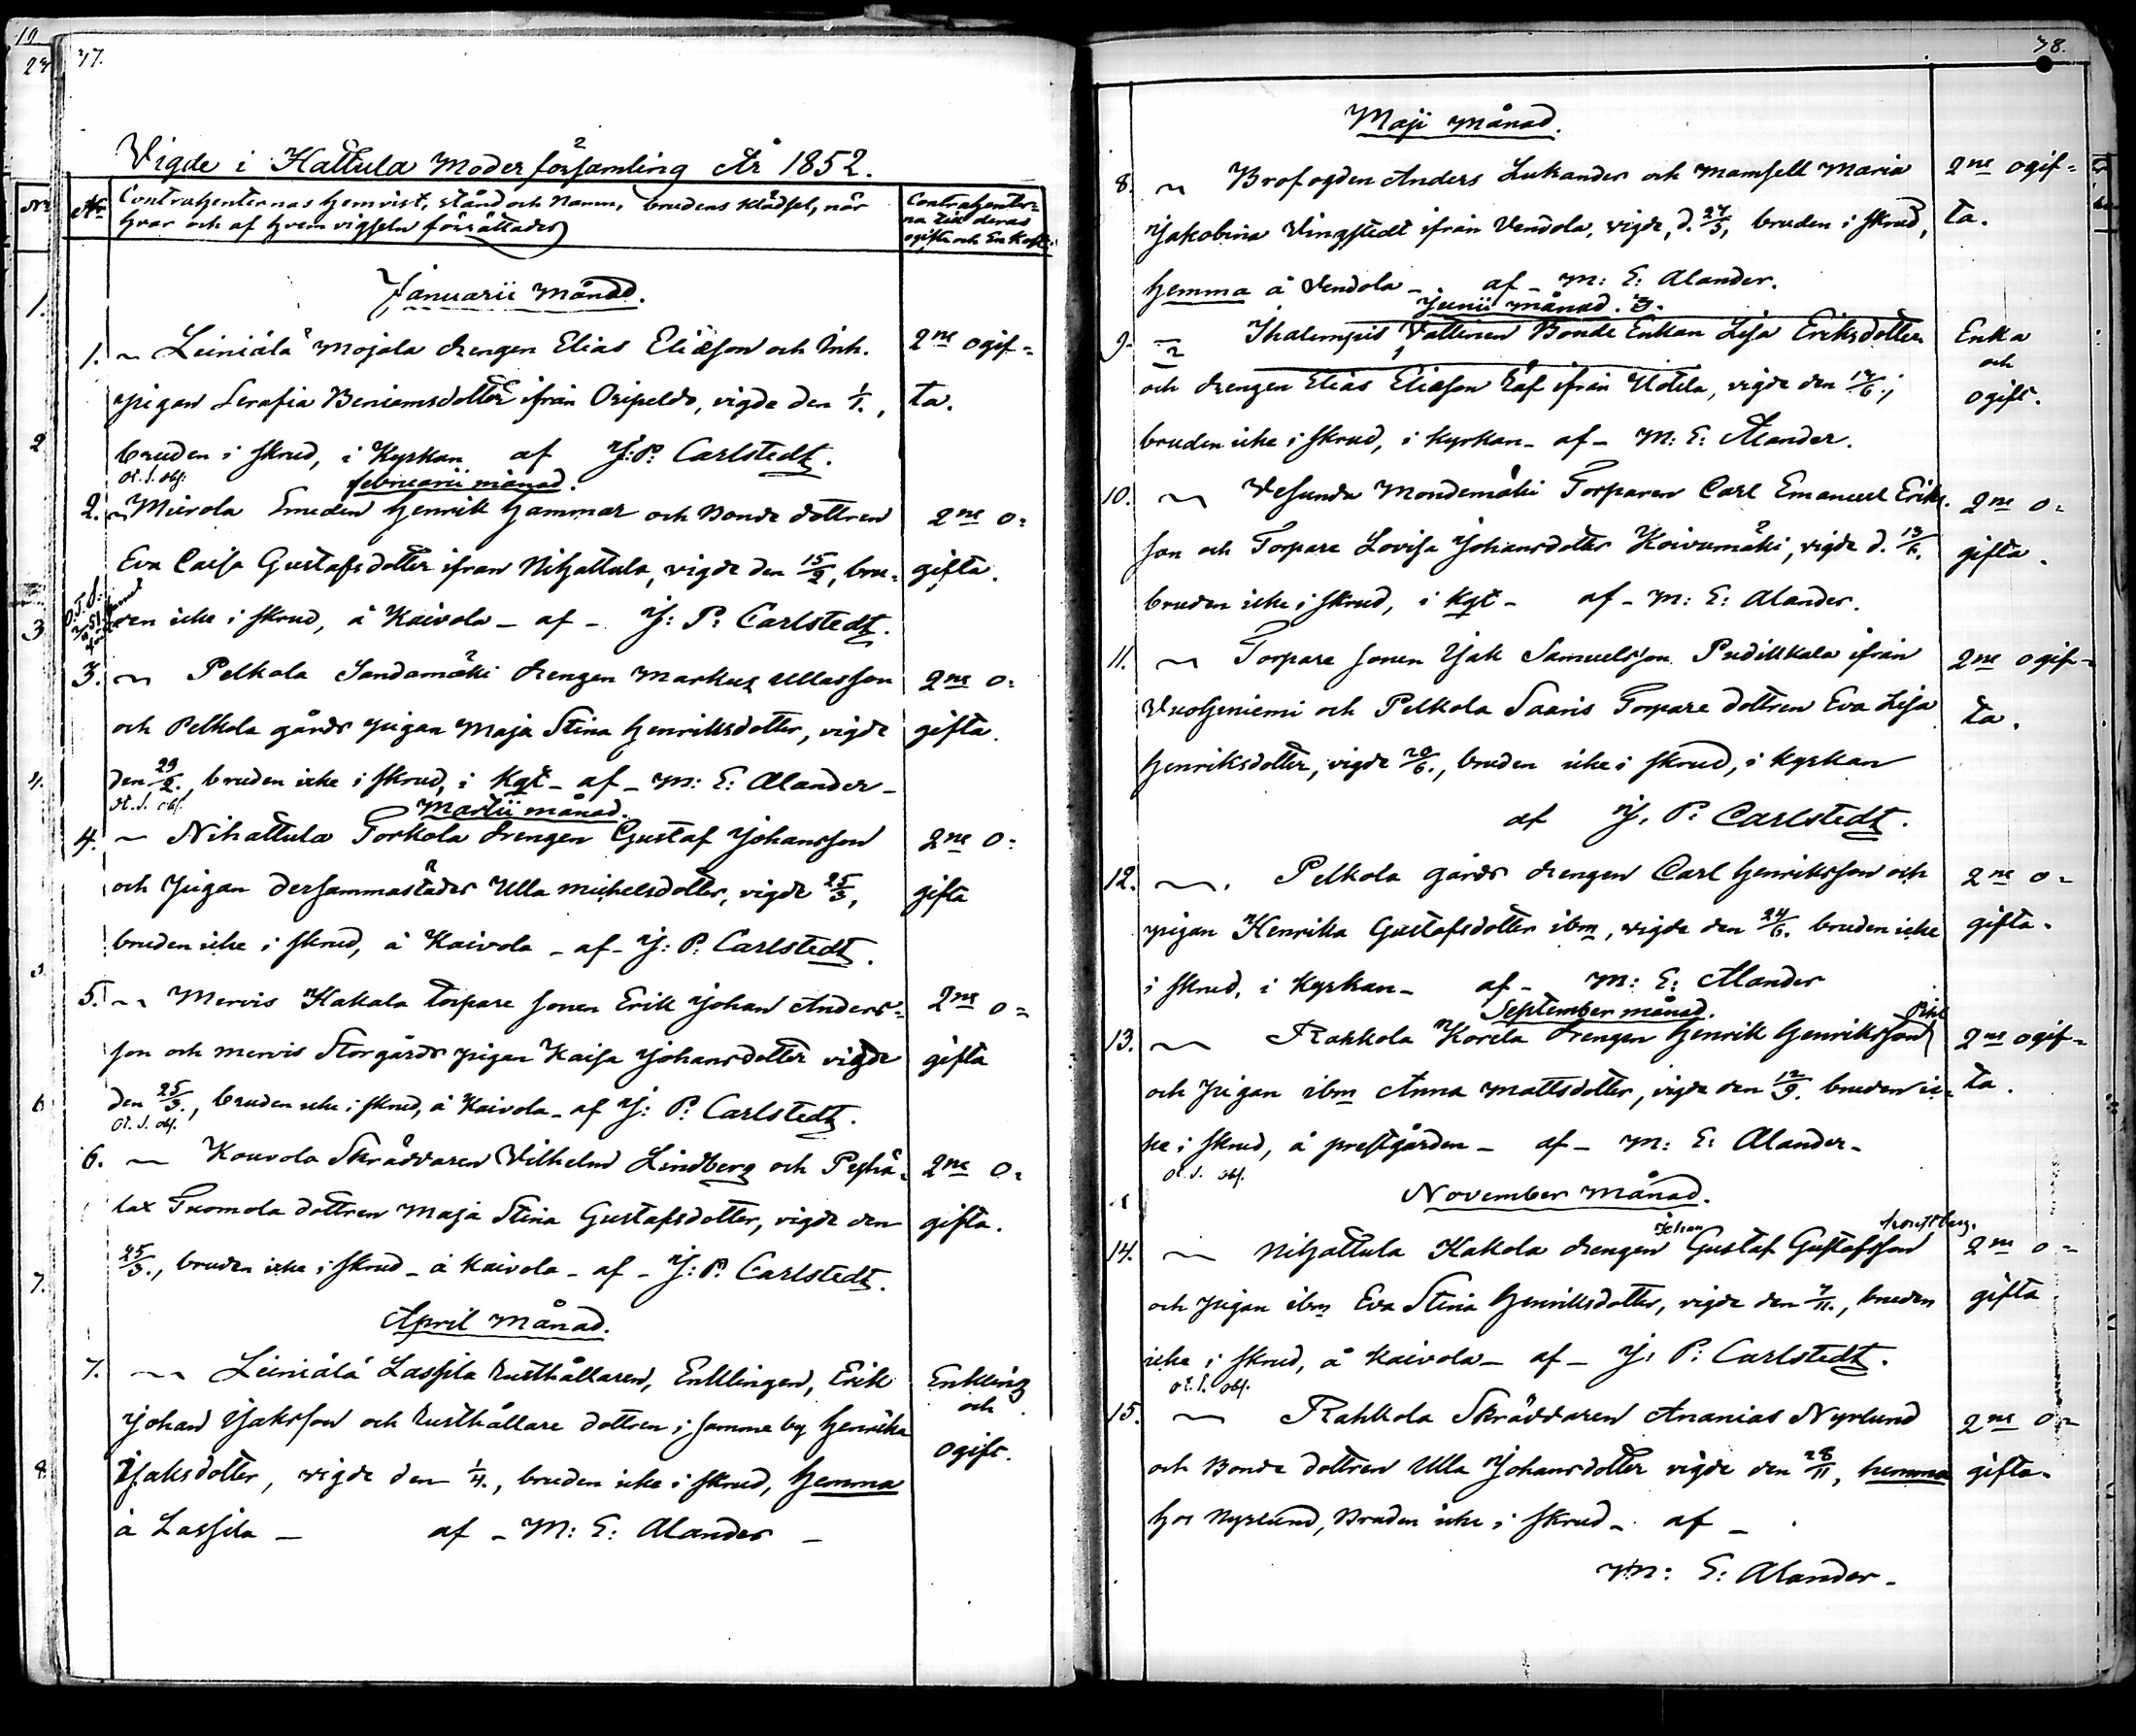 37.
Vigde i Hattula Moderförsamling År 1852.
No Contrahenternas hemvist, stånd och Namn, brudens klädsel, när
hvar och af hvem vigseln förrättades
Contrahenter=
na
ogifte och
Januarii Månad.
1. Leiniälä Mojala drengen Elias Eliæson och Inh. 2ne ogif=
pigan Serafia Beniamsdotter ifrån , vigde den 1/1., ta.
bruden i skrud, i Kyrkan af J: P: Carlstedt.
Februarii månad.
2. Mierola Smeden Henrik Hammar och Bonde dottren 2ne o=
Eva Caisa Gustafsdotter ifrån Nihattula, vigde den 15/2, bru= gifta.
den icke i skrud, å Kaivola - af - J: P: Carlstedt.
3. Pelkola Sandamäki drengen Markus Ullasson 2ne o=
och Pelkola gårds pigan Maja Stina Henriksdotter, vigde gifta.
den 29/2., bruden icke i skrud, i Kgt - af - M: E: Alander -
Martii månad.
4. Nihattula Torkola drengen Gustaf Johansson 2ne o=
och pigan dersammastädes Ulla Michelsdotter, vigde 25/3, gifta
bruden icke i skrud, å Kaivola - af - J: P: Carlstedt.
5. Mervis Kakala torpare sonen Erik Johan Anders= 2ne o=
son och Mervis Storgårds pigan Kaisa Johansdotter vigde gifta
den 25/3., bruden icke i skrud, å Kaivola - af J: P: Carlstedt.
6. Kouvola Skräddaren Vilhelm Lindberg och Pyhä= 2ne o=
lax Tuomola dottren Maja Stina Gustafsdotter, vigde den gifta.
25/3., bruden icke i skrud - å Kaivola - af - J: P: Carlstedt.
April Månad.
7. Leiniälä Lassila Rusthållaren, Enklingen, Erik Enkling
Johan Isaksson och Rusthållare dottren i samme by Henrika och
Isaksdotter, vigde den 1/4., bruden icke i skrud, hemma ogift.
å Lassila - af - M: E: Alander -
38.
Maji Månad.
8. Brofogden Anders Lukander och Mamsell Maria 2ne ogif=
Jakobina Vingstedt ifrån Vendola, vigde, d. 27/5, bruden i skrud, ta.
hemma å Vendola - af - M: E: Alander.
Junii månad.
9. Ihalempis Vallinen Bonde Enkan Lisa Eriksdotter Enka
och
och drengen Elias Eliæson Räf ifrån Uotila, vigde den 13/6., ogift.
bruden icke i skrud, i kyrkan - af - M: E: Alander.
10. Vesunda Mondemäki Torparen Carl Emanuel Eriks. 2ne o=
son och Torpare Lovisa Johansdotter Koivumäki, vigde d. 13/6. gifta.
bruden icke i skrud, i Kgt - af - M: E: Alander.
11. Torpare sonen Isak Samuelsson Pudikkala ifrån 2ne ogif=
Vuohiniemi och Pelkola Saaris Torpare dottren Eva Lisa ta.
Henriksdotter, vigde 20/6., bruden icke i skrud, i kyrkan
af J. P: Carlstedt.
12. Pelkola gårds drengen Carl Henriksson och 2ne o=
pigan Henrika Gustafsdotter ibm, vigde den 24/6. bruden icke gifta.
i skrud, i Kyrkan - af - M: E: Alander
September månad.
13. Rahkola Korela drengen Henrik Henriksson 2ne ogif=
och pigan ibm Anna Mattsdotter, vigde den 12/9. bruden ic= ta.
ke i skrud, å prestgården - af - M: E: Alander -
November Månad.
Johan
14. Nihattula Kakola drengen Gustaf Gustafsson 2ne o=
och pigan ibm Eva Stina Henriksdotter, vigde den 7/11., bruden gifta
icke i skrud, å Kaivola - af - J: P: Carlstedt.
15. Rahkola Skräddaren Ananias Nyrlund 2ne o=
och Bonde dottren Ulla Johansdotter vigde den 28/11, hemma gifta.
hos Nyrlund, Bruden icke i skrud - af -
M: E: Alander -